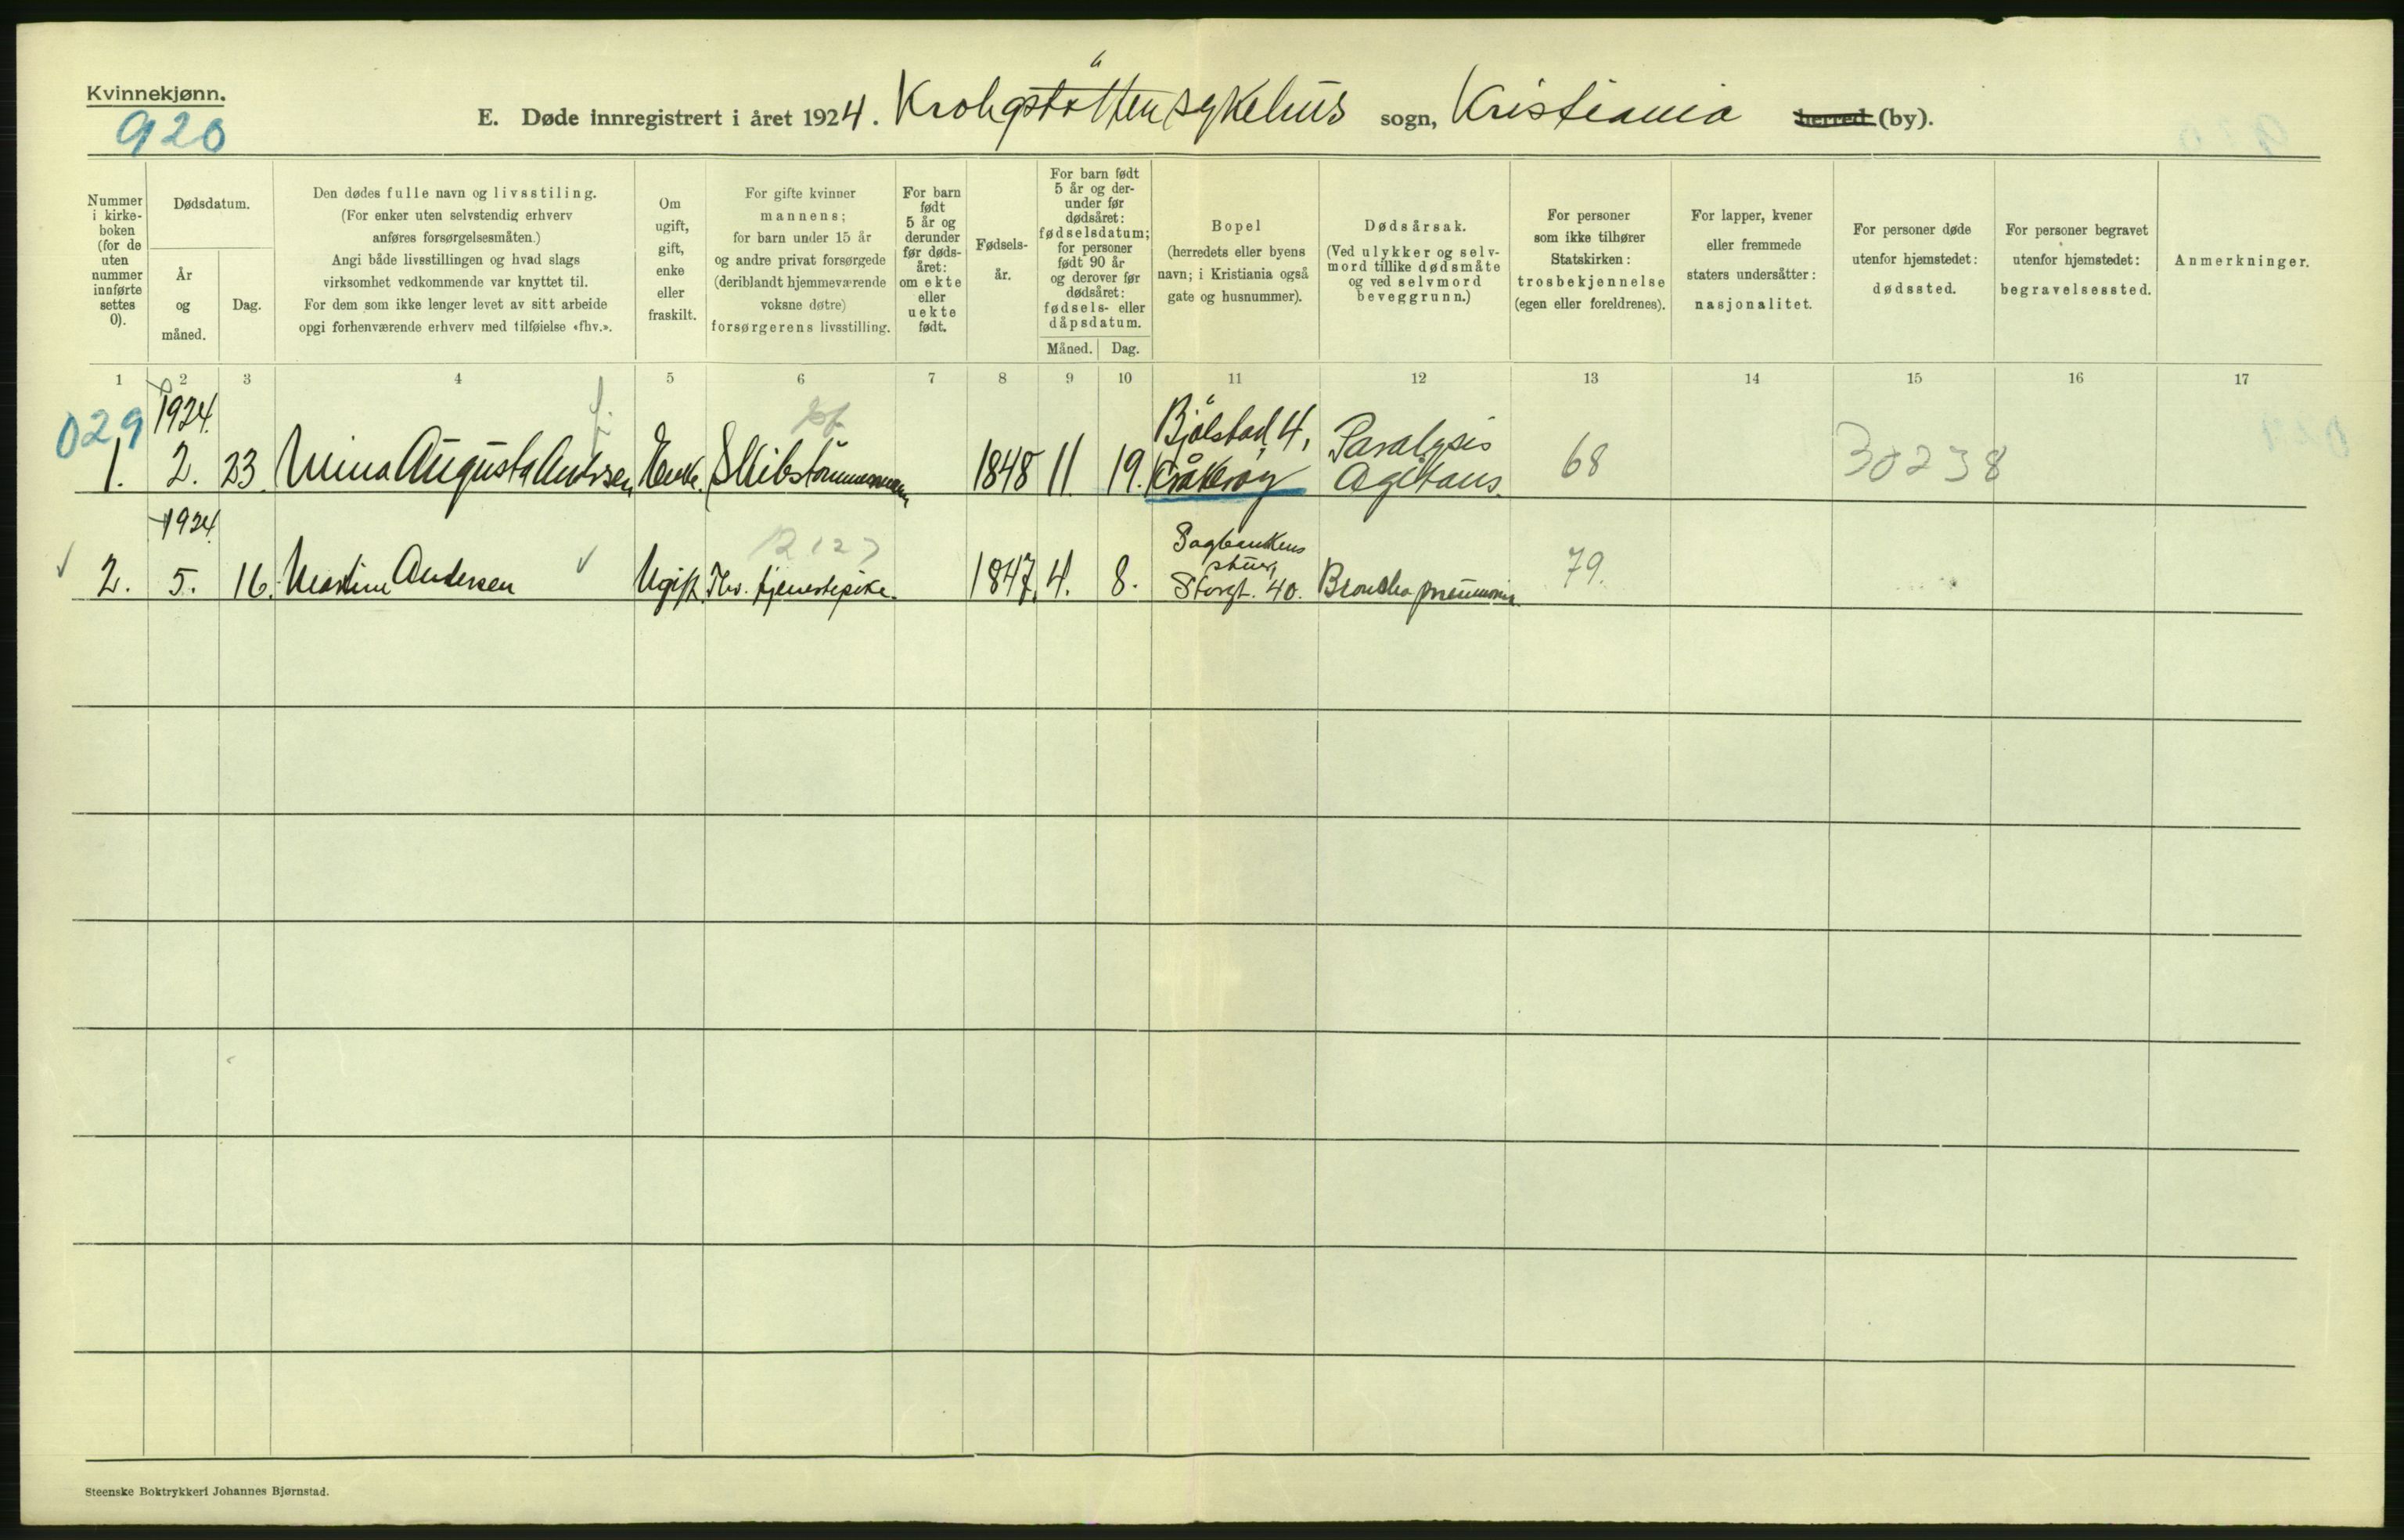 Kvinnekjønn.
920
E. Døde innregistrert i året 1924. Krohgstötten sykehus sogn, Kristiania herred (by).
Nummer i kirke-boken (for de uten nummer innførte settes 0).
Dødsdatum.
År og måned.
Dag.
Den dødes fulle navn og livsstiling.
(For enker uten selvstendig erhverv
anføres forsørgelsesmåten.)
Angi både livsstillingen og hvad slags
virksomhet vedkommende var knyttet til.
For dem som ikke lenger levet av sitt arbeide
opgi forhenværende erhverv med tilføielse «fhv.».
Om
ugift,
gift,
enke
eller
fraskilt.
For gifte kvinner
mannens;
for barn under 15 år
og andre privat forsørgede
(deriblandt hjemmeværende
voksne døtre)
forsørgerens livsstilling.
For barn
født
5 år og
derunder
før døds-
året:
om ekte
eller
uekte
født.
Fødsels-
år.
For barn født
5 år og der-
under før
dødsåret:
fødselsdatum;
for personer
født 90 år
og derover før
dødsåret:
fødsels- eller
dåpsdatum.
Måned. Dag.
Bopel
(herredets eller byens
navn; i Kristiania også
gate og husnummer).
Dødsårsak.
(Ved ulykker og selv-
mord tillike dødsmåte
og ved selvmord
beveggrunn.)
For personer
som ikke tilhører
Statskirken:
trosbekjennelse
(egen eller foreldrenes).
For lapper, kvener
eller fremmede
staters undersåtter:
nasjonalitet.
For personer døde
utenfor hjemstedet:
dødssted.
For personer begravet
utenfor hjemstedet:
begravelsessted.
Anmerkninger.
1 2 3 4 5 6 7 8 9 10 11 12 13 14 15 16 17
029
1924.
1. 2. 23. Mina Augusta Enke. Skibstömmermann 1848 11. 19. Bjölstad, 4, Kråkeröy Paralysis Agitans. 68 30238
1924
2. 5. 16. Martine Andersen Ugift. Fhv. tjenestepike. 1847. 4. 8. Sagbankens stue, Storgt. 40. Broncho pneumonia. 79.
2127
Steenske Boktrykkeri Johannes Bjørnstad.